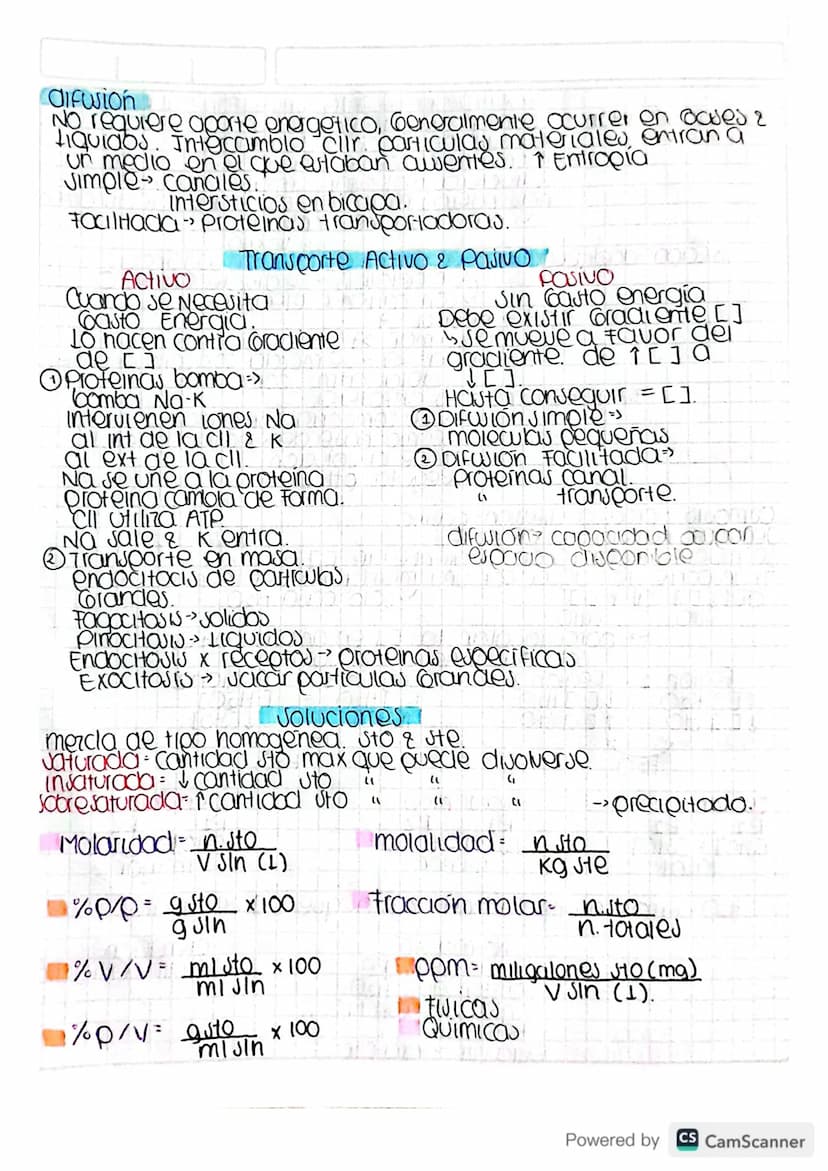 Difusión
No requiere aporte energético, Generalmente ocurrer en Gases &
Liquidos. Intercambio Cllr. particulas materiales entran a
un medio en el que estaban ausentes. ↑ Entropía
Simple → canales.
Intersticios en bicapa.
Facilitada → Proteinas transportadoras.
Transporte Activo & Pasivo
Activo
Cuando se Necesita
Gasto Energia.
Lo hacen contra Gradiente
de [ ]
① Proteinas bomba =>
bomba Na-K
Intervienen iones Na
al int de la cll & K
al ext de la cll.
Na se une a la proteina
proteina cambia de forma.
Cll utiliza ATP
Na sale & K entra.
② Transporte en masa.
endocitocis de particulas
Grandes.
Fagocitosis → solidos
Pinocitosis → Liquidos
Endocitosis x receptos → proteinas especificas
Exocitosis → sacar particulas Grandes.
Pasivo
Sin Gasto energía
Debe existir Gradiente [ ]
↳ se mueve a favor del
gradiente. de ↑ [ ] a
↓ [ ].
Hasta conseguir = [ ].
① Difusión simple =>
moleculas pequeñas
② Difusión Facilitada =>
proteinas canal.
" transporte.
difusión → capacidad ocupan
espacio disponible
Soluciones
mezcla de tipo homogenea. Sto & Ste.
Saturada = Cantidad Sto max que puede disolverse.
Insaturada = ↓ cantidad Sto " " "
Sobresaturada = ↑ cantidad Sto " " " → precipitado.
Molaridad = n.sto / V sln (L)
molalidad = n.sto / Kg ste
% P/P = g sto / g sln x 100
Fracción molar = n.sto / n.totales
% V/V = ml sto / ml sln x 100
ppm = miligalones sto (mg) / V sln (L).
Fisicas
Quimicas
% P/V = g sto / ml sln x 100
Powered by CS CamScanner